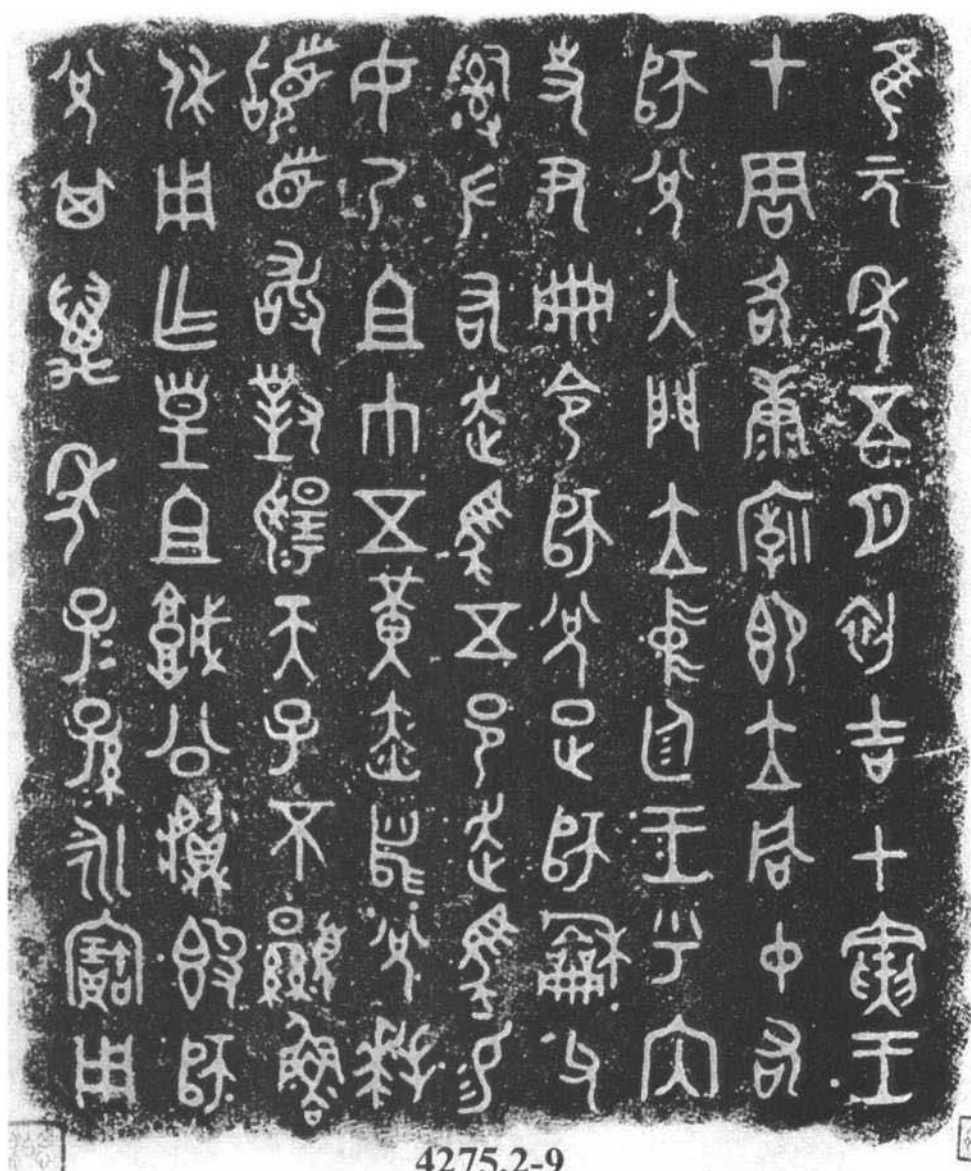 隹元年五月初吉甲寅王
才周各康廟即立同中右
師兌入門立中廷王乎內
史尹冊令師兌疋師龢父
𤔲左右走馬五邑走馬易
女乃且巾五黃赤舄兌拜
𩒨首敢對揚天子不顯魯
休用乍皇且城公𪔉簋師
兌其萬年子=孫=永寶用
4275.2-9